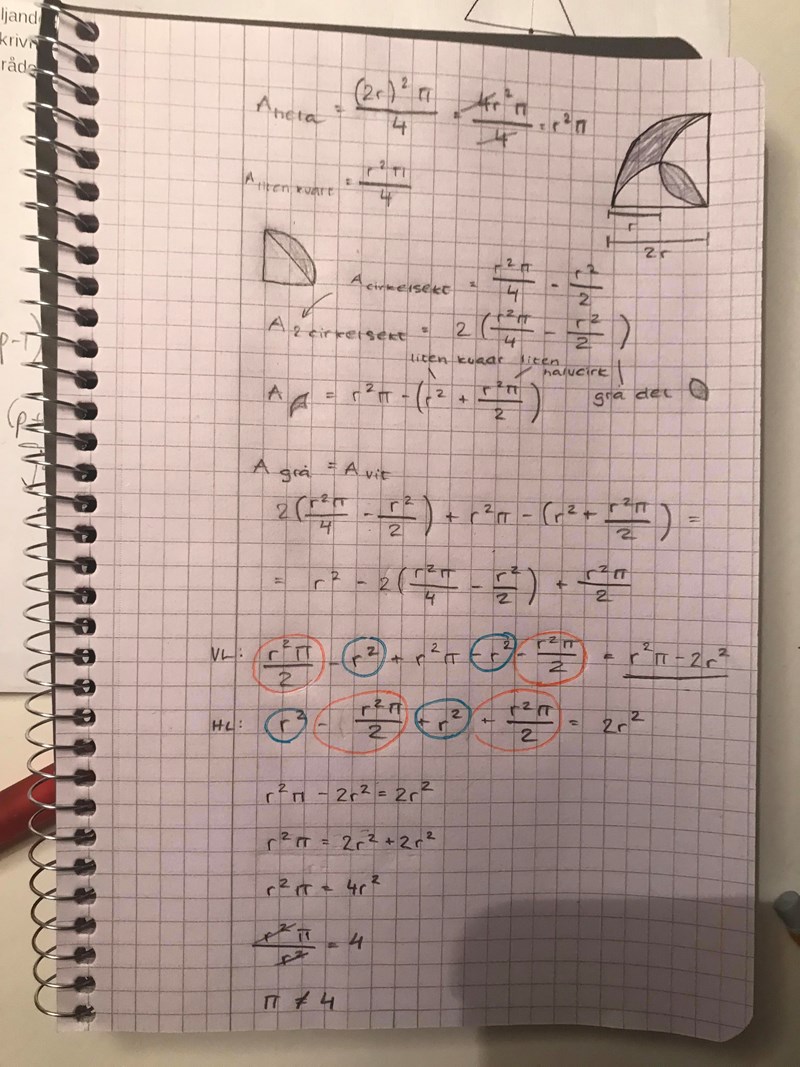 ljand
krivr
råde
A hela = (2r)² π / 4 = 4r² π / 4 = r² π
A liten kvart = r² π / 4
r
2r
A cirkelsekt = r² π / 4 - r² / 2
A 2 cirkelsekt = 2 ( r² π / 4 - r² / 2 )
liten kvadr liten halvcirk
A = r² π - ( r² + r² π / 2 ) grå del
A grå = A vit
2 ( r² π / 4 - r² / 2 ) + r² π - ( r² + r² π / 2 ) =
= r² - 2 ( r² π / 4 - r² / 2 ) + r² π / 2
VL: r² π / 2 - r² + r² π - r² - r² π / 2 = r² π - 2r²
HL: r² - r² π / 2 + r² + r² π / 2 = 2r²
r² π - 2r² = 2r²
r² π = 2r² + 2r²
r² π = 4r²
r² π / r² = 4
π ≠ 4